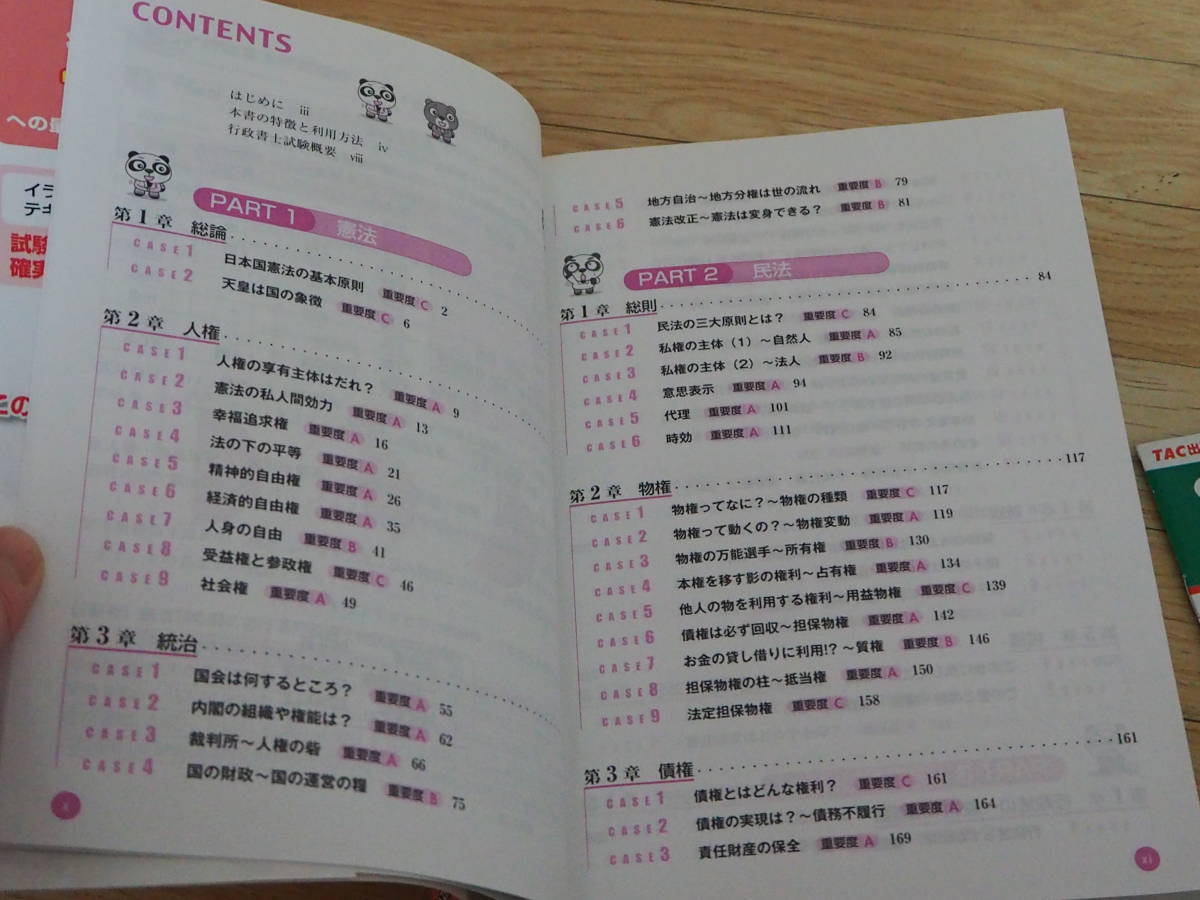 CONTENTS
はじめに iii
本書の特徴と利用方法 iv
行政書士試験概要 viii
PART 1 憲法
第1章 総論
CASE 1 日本国憲法の基本原則 重要度 C 2
CASE 2 天皇は国の象徴 重要度 C 6
第2章 人権
CASE 1 人権の享有主体はだれ? 重要度 A 9
CASE 2 憲法の私人間効力 重要度 A 13
CASE 3 幸福追求権 重要度 A 16
CASE 4 法の下の平等 重要度 A 21
CASE 5 精神的自由権 重要度 A 26
CASE 6 経済的自由権 重要度 A 35
CASE 7 人身の自由 重要度 B 41
CASE 8 受益権と参政権 重要度 C 46
CASE 9 社会権 重要度 A 49
第3章 統治
CASE 1 国会は何するところ? 重要度 A 55
CASE 2 内閣の組織や権能は? 重要度 A 62
CASE 3 裁判所~人権の砦 重要度 A 66
CASE 4 国の財政~国の運営の糧 重要度 B 75
x
CASE 5 地方自治~地方分権は世の流れ 重要度 B 79
CASE 6 憲法改正~憲法は変身できる? 重要度 B 81
PART 2 民法
第1章 総則 84
CASE 1 民法の三大原則とは? 重要度 C 84
CASE 2 私権の主体(1)~自然人 重要度 A 85
CASE 3 私権の主体(2)~法人 重要度 B 92
CASE 4 意思表示 重要度 A 94
CASE 5 代理 重要度 A 101
CASE 6 時効 重要度 A 111
第2章 物権 117
CASE 1 物権ってなに?~物権の種類 重要度 C 117
CASE 2 物権って動くの?~物権変動 重要度 A 119
CASE 3 物権の万能選手~所有権 重要度 B 130
CASE 4 本権を移す影の権利~占有権 重要度 A 134
CASE 5 他人の物を利用する権利~用益物権 重要度 C 139
CASE 6 債権は必ず回収~担保物権 重要度 A 142
CASE 7 お金の貸し借りに利用!?~質権 重要度 B 146
CASE 8 担保物権の柱~抵当権 重要度 A 150
CASE 9 法定担保物権 重要度 C 158
第3章 債権 161
CASE 1 債権とはどんな権利? 重要度 C 161
CASE 2 債権の実現は?~債務不履行 重要度 A 164
CASE 3 責任財産の保全 重要度 A 169
xi
への
イラ
テキ
試験
確実
との
TAC出